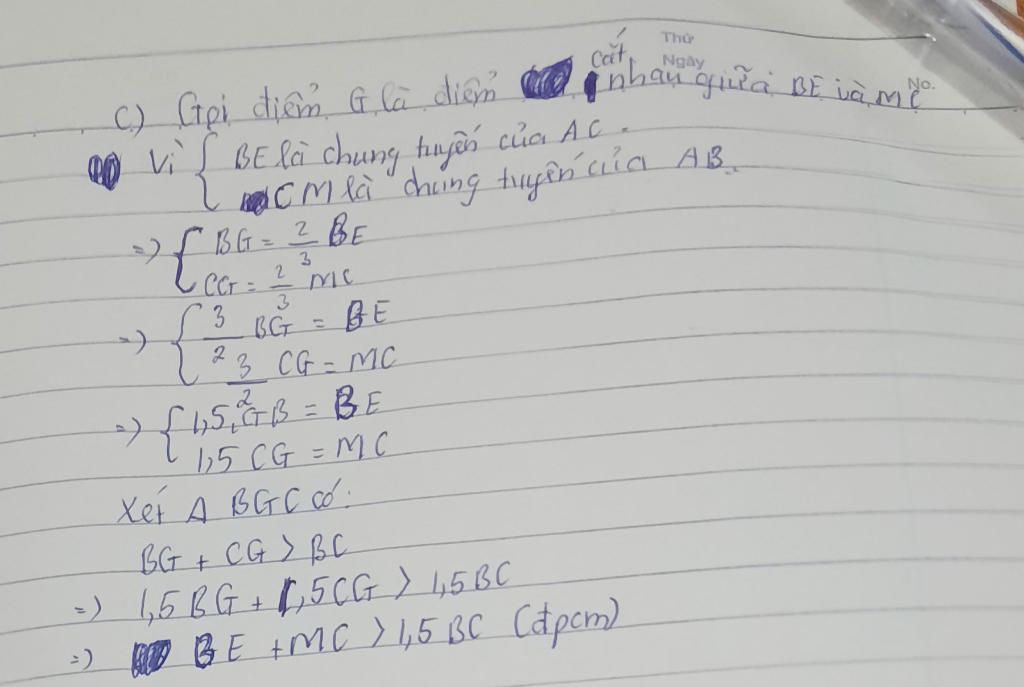 Thứ
Ngày
No.
c) Gọi điểm G là điểm cắt nhau giữa BE và MC
Vì { BE là chung tuyến của AC.
CM là chung tuyến của AB.
=> { BG = 2/3 BE
CG = 2/3 MC
=> { 3/2 BG = BE
3/2 CG = MC
=> { 1,5.GB = BE
1,5 CG = MC
Xét Δ BGC có:
BG + CG > BC
=> 1,5 BG + 1,5CG > 1,5BC
=> BE + MC > 1,5 BC (đpcm)